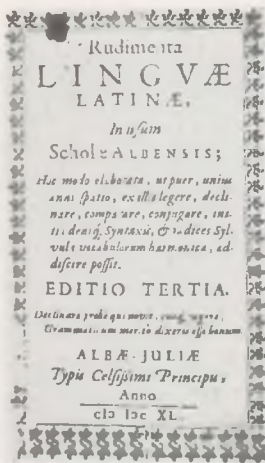 Rudimenta
LINGVÆ
LATINÆ,
In uſum
Scholæ ALBENSIS;
Hac modo elaborata, ut puer, unius
anni ſpatio, ex illa legere, decli-
nare, comparare, conjugare, ini-
tia deniq́; Syntaxis, & radices Syl-
vulæ vocabulorum harmonica, ad-
diſcere poſſit.
EDITIO TERTIA.
Declinare probe qui novit,
Grammaticum merito dixeris eſſe bonum.
ALBÆ-JULIÆ
Typis Celſiſſimi Principis,
Anno
cIɔ Iɔc XL.